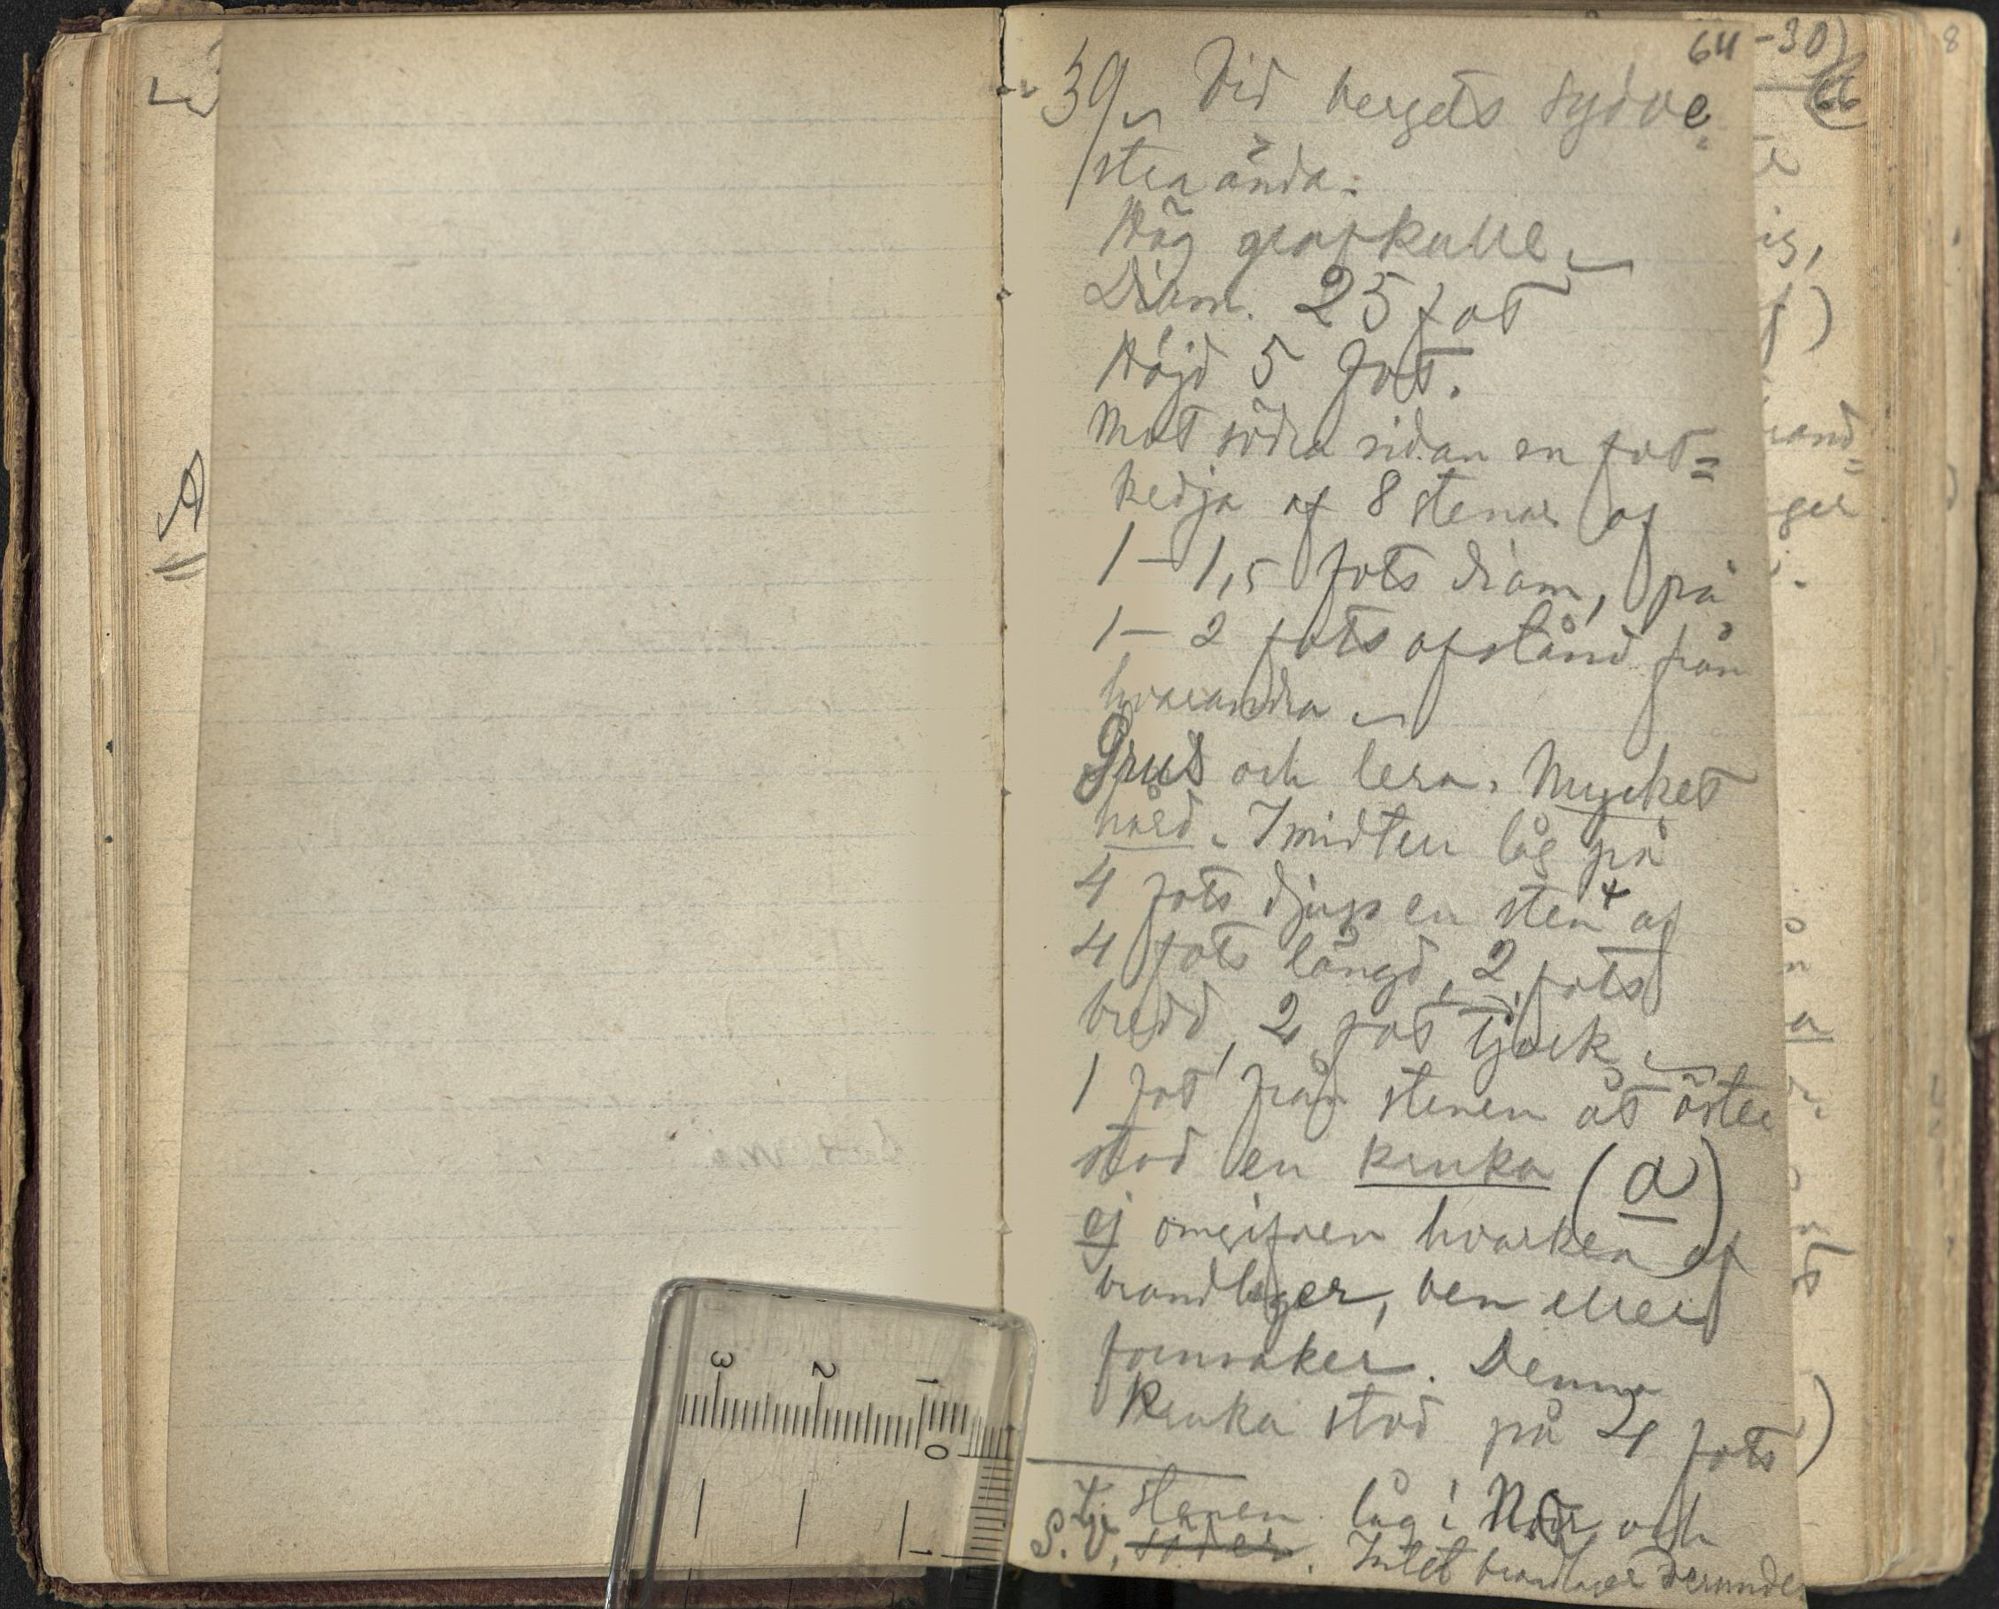 64
39, Vid bergets sydve=
stra ända.
Hög grafkulle.
Diam. 25 fot
Höjd 5 fot.
Mot södra sidan en fot=
kedja af 8 stenar af
1-1,5 fots diam, på
1-2 fots afstånd från
hvarandra.
Grus och lera. Mycket
hård. I midten låg på
4 fots djup en sten + af
4 fots längd, 2 fots
bredd, 2 fot tjock.
1 fot från stenen åt öster
stod en kruka (a)
ej omgifven hvarken af
brandlager, ben eller
fornsaker. Denna
Kruka stod på 4 fots
+/ stenen låg i N.O. och
S.V. söder. Intet brandlager derunder
-30)
66
A
and=
ger
8